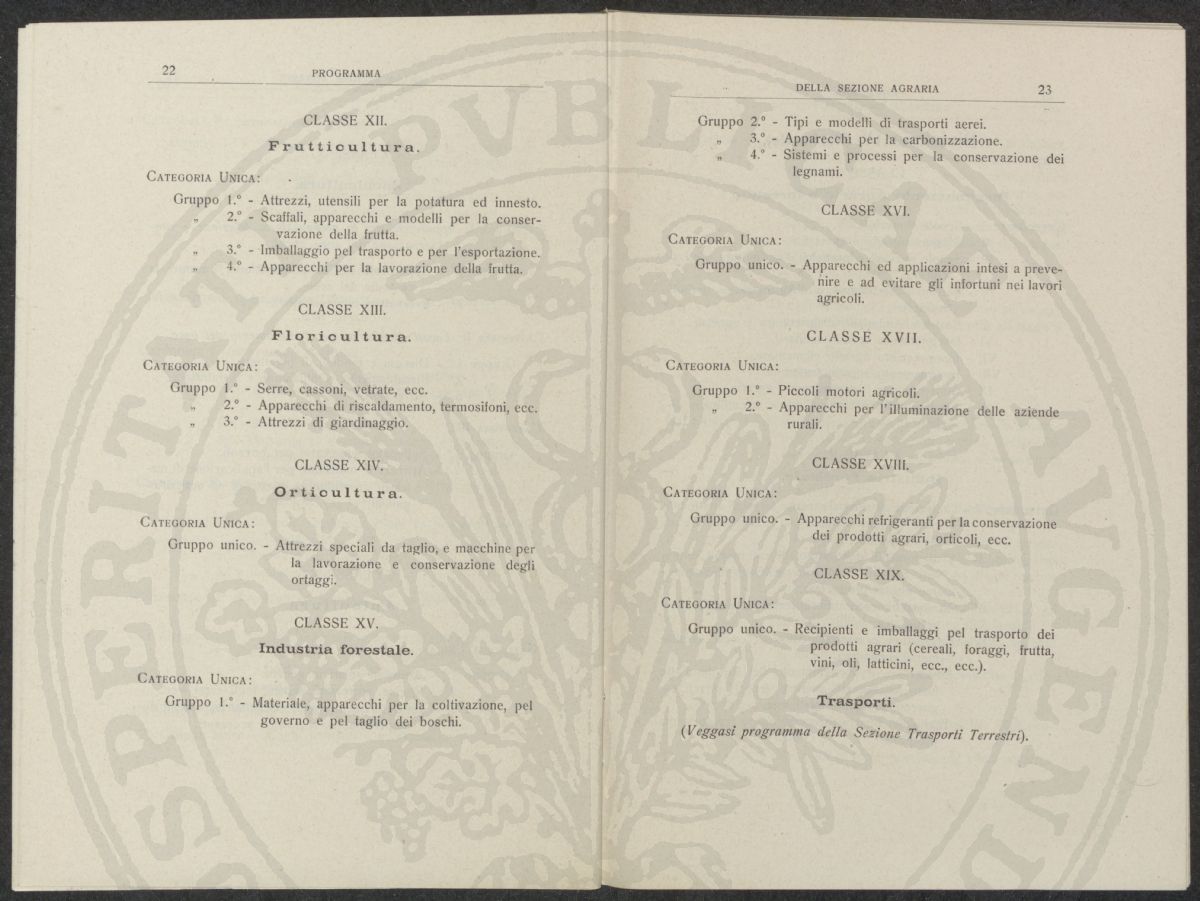 22 PROGRAMMA
CLASSE XII.
Frutticultura.
CATEGORIA UNICA:
Gruppo 1.º - Attrezzi, utensili per la potatura ed innesto.
„ 2.º - Scaffali, apparecchi e modelli per la conser-
vazione della frutta.
„ 3.º - Imballaggio pel trasporto e per l'esportazione.
„ 4.º - Apparecchi per la lavorazione della frutta.
CLASSE XIII.
Floricultura.
CATEGORIA UNICA:
Gruppo 1.º - Serre, cassoni, vetrate, ecc.
„ 2.º - Apparecchi di riscaldamento, termosifoni, ecc.
„ 3.º - Attrezzi di giardinaggio.
CLASSE XIV.
Orticultura.
CATEGORIA UNICA:
Gruppo unico. - Attrezzi speciali da taglio, e macchine per
la lavorazione e conservazione degli
ortaggi.
CLASSE XV.
Industria forestale.
CATEGORIA UNICA:
Gruppo 1.º - Materiale, apparecchi per la coltivazione, pel
governo e pel taglio dei boschi.
DELLA SEZIONE AGRARIA 23
Gruppo 2.º - Tipi e modelli di trasporti aerei.
„ 3.º - Apparecchi per la carbonizzazione.
„ 4.º - Sistemi e processi per la conservazione dei
legnami.
CLASSE XVI.
CATEGORIA UNICA:
Gruppo unico. - Apparecchi ed applicazioni intesi a preve-
nire e ad evitare gli infortuni nei lavori
agricoli.
CLASSE XVII.
CATEGORIA UNICA:
Gruppo 1.º - Piccoli motori agricoli.
„ 2.º - Apparecchi per l'illuminazione delle aziende
rurali.
CLASSE XVIII.
CATEGORIA UNICA:
Gruppo unico. - Apparecchi refrigeranti per la conservazione
dei prodotti agrari, orticoli, ecc.
CLASSE XIX.
CATEGORIA UNICA:
Gruppo unico. - Recipienti e imballaggi pel trasporto dei
prodotti agrari (cereali, foraggi, frutta,
vini, oli, latticini, ecc., ecc.).
Trasporti.
(Veggasi programma della Sezione Trasporti Terrestri).
SPERITATI PVBLICAE AVGEND